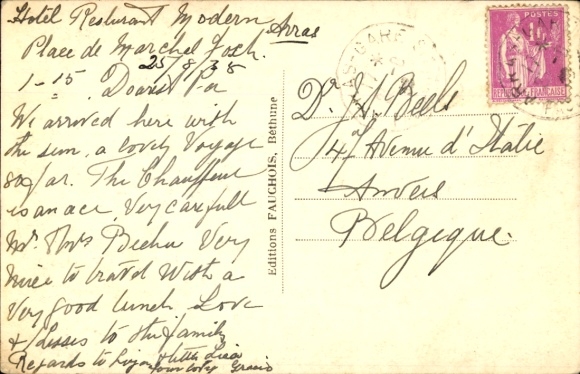 Hotel Resturant Modern
Arras
Place de Marchel Foch.
25/8/38
1-15 Dearest Pa
We arrived here with
the sun, a lovely Voyage
so far. The Chauffeur
is an ace, Very carefull
Mr. Mrs Very
nice to travel With a
Very good lunch Love
& kisses to the family
Regards to little
your
Editions FAUCHOIS, Béthune
GARE
POSTES
RÉPUBLIQUE FRANÇAISE
Dr. A. Beels
47 Avenue d'Italie
Anvers
Belgique.